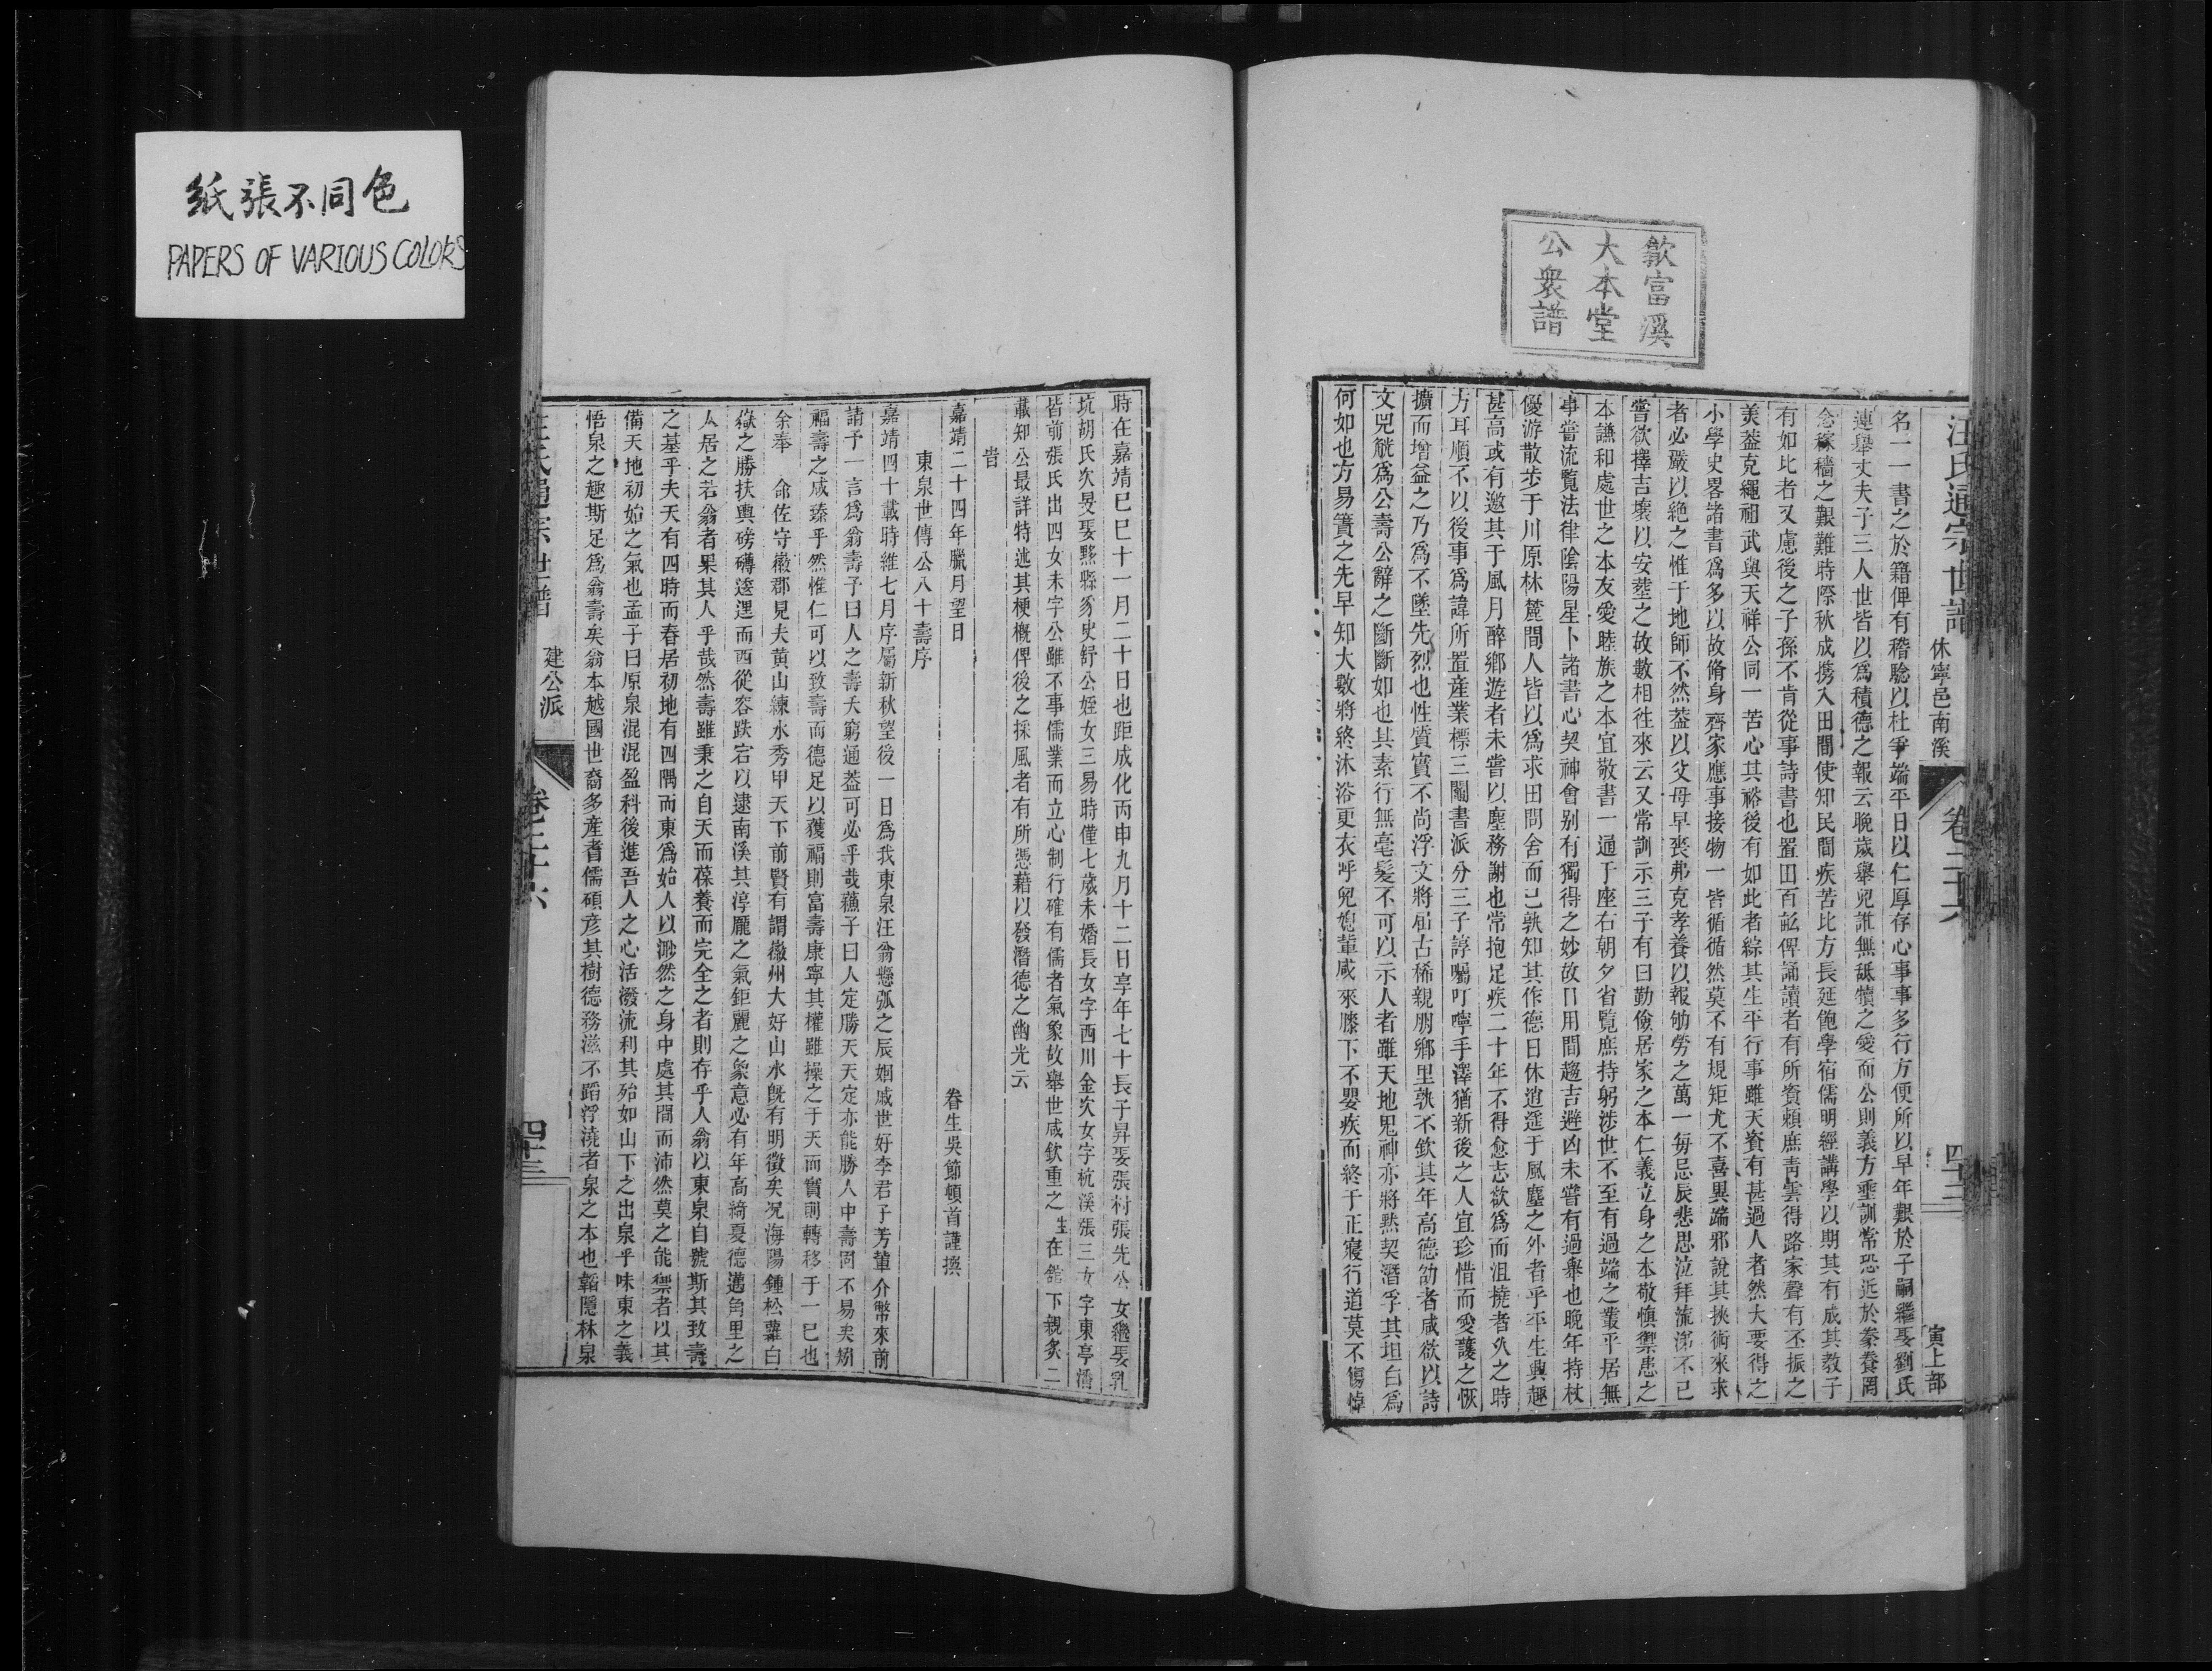 紙張不同色
PAPERS OF VARIOUS COLORS
歙富溪
大本堂
公衆譜
汪氏通宗世譜 休寧邑南溪 卷 四十二 寅上部
名一一書之於籍俾有稽騐以杜爭端平日以仁厚存心事事多行方便所以早年艱於子嗣繼娶劉氏
連舉丈夫子三人世皆以爲積德之報云晚歲舉兒誰無舐犢之愛而公則義方垂訓常恐近於豢養罔
念稼穡之艱難時際秋成携入田間使知民間疾苦比方長延飽學宿儒明經講學以期其有成其教子
有如此者又慮後之子孫不肯從事詩書也置田百畝俾誦讀者有所資頼庶靑雲得路家聲有丕振之
美葢克繩祖武與天祥公同一苦心其裕後有如此者綜其生平行事雖天資有甚過人者然大要得之
小學史畧諸書爲多以故脩身齊家應事接物一皆循循然莫不有規矩尤不喜異端邪說其挾術來求
者必嚴以絶之惟于地師不然葢以父母早喪弗克孝養以報劬勞之萬一毎忌辰悲思泣拜流涕不已
嘗欲擇吉壤以安塟之故數相徃來云又常訓示三子有曰勤儉居家之本仁義立身之本敬愼禦患之
本謙和處世之本友愛睦族之本宜敬書一通于座右朝夕省覧庶持躬涉世不至有過端之叢平居無
事嘗流覧法律陰陽星卜諸書心契神會别有獨得之妙故日用間趨吉避凶未嘗有過舉也晚年持杖
優游散步于川原林麓間人皆以爲求田問舍而已孰知其作德日休逍遥于風塵之外者乎平生興趣
甚高或有邀其于風月醉鄉遊者未嘗以塵務謝也常抱足疾二十年不得愈志欲爲而沮撓者久之時
方耳順不以後事爲諱所置産業標三鬮書派分三子諄囑叮嚀手澤猶新後之人宜珍惜而愛護之恢
擴而增益之乃爲不墜先烈也性質實不尚浮文將屆古稀親朋鄉里孰不欽其年高德劭者咸欲以詩
文兕觥爲公壽公辭之斷斷如也其素行無毫髮不可以示人者雖天地鬼神亦將黙契潛孚其坦白爲
何如也方易簀之先早知大數將終沐浴更衣呼兒媳輩咸來膝下不嬰疾而終于正寢行道莫不傷悼
時在嘉靖巳巳十一月二十日也距成化丙申九月十二日享年七十長子昇娶張村張先公女繼娶乳
坑胡氏次旻娶黟縣豸史舒公姪女三易時僅七歲未婚長女字西川金次女字杭溪張三女字東亭
皆前張氏出四女未字公雖不事儒業而立心制行確有儒者氣象故舉世咸欽重之生在舘下親炙二
載知公最詳特述其梗概俾後之採風者有所憑藉以發潛德之幽光云
旹
嘉靖二十四年臘月望日 眷生吳節頓首謹撰
東泉世傳公八十壽序
嘉靖四十載時維七月序屬新秋望後一日爲我東泉汪翁懸弧之辰姻戚世好李君子芳輩介幣來前
請予一言爲翁壽予曰人之壽夭窮通葢可必乎哉蘓子曰人定勝天天定亦能勝人中壽固不易矣矧
福壽之咸臻乎然惟仁可以致壽而德足以獲福則富壽康寧其權雖操之于天而實則轉移于一己也
余奉 命佐守徽郡見夫黄山練水秀甲天下前賢有謂徽州大好山水旣有明徵矣况海陽鍾松蘿白
嶽之勝扶輿磅礴逶逦而西從容跌宕以逮南溪其渟龐之氣鉅麗之象意必有年高綺夏德邁甪里之
人居之若翁者果其人乎哉然壽雖秉之自天而葆養而完全之者則存乎人翁以東泉自號斯其致壽
之基乎夫天有四時而春居初地有四隅而東爲始人以渺然之身中處其間而沛然莫之能禦者以其
備天地初始之氣也孟子曰原泉混混盈科後進吾人之心活潑流利其殆如山下之出泉乎味東之義
悟泉之趣斯足爲翁壽矣翁本越國世裔多產耆儒碩彦其樹德務滋不蹈浮澆者泉之本也韜隱林泉
汪氏通宗世譜 建公派 卷 四十三